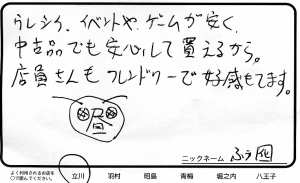 うレシク、イベントや、ゲームが安く、
中古品でも安心して買えるから。
店員さんもフレンドリーで好感もてます。
ニックネーム ふぅ
よく利用されるお店を
○で囲んでください。
立川 羽村 昭島 青梅 堀之内 八王子